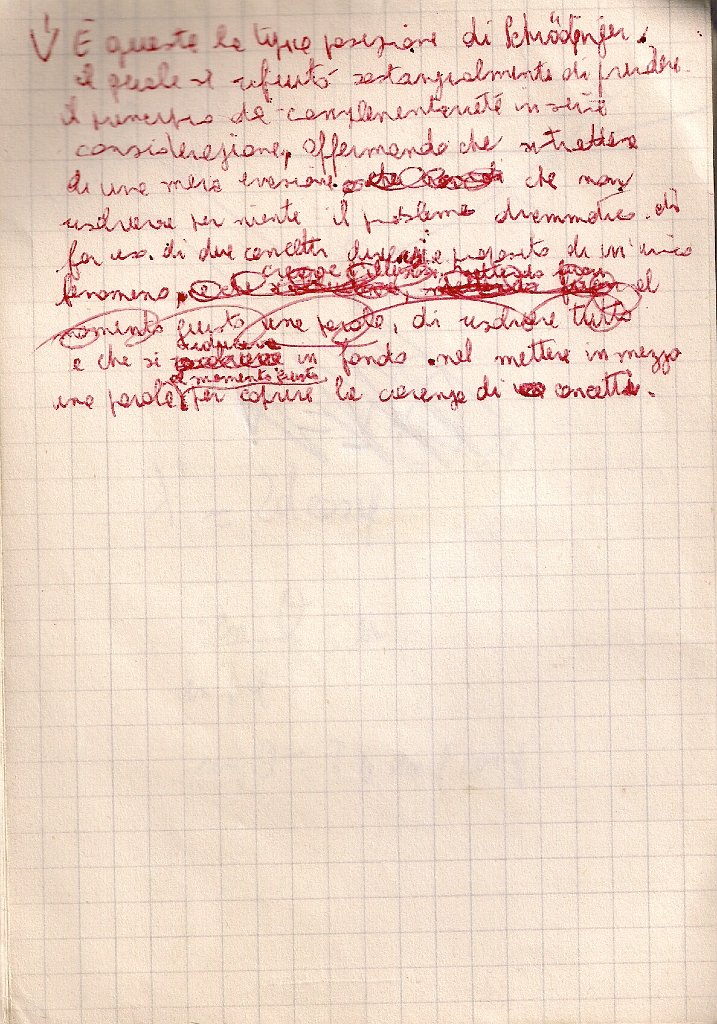 È questa la tipica posizione di Schrödinger.
il quale si rifiutò sostanzialmente di prendere
il principio di complementarietà in seria
considerazione, affermando che si trattava
di una mera evasione che non
risolveva per niente il problema drammatico di
far uso di due concetti diversi a proposito di un unico
fenomeno, e che
al
momento giusto una parola, di risolvere tutto
riduceva
e che si in fondo nel mettere in mezzo
al momento giusto
una parola per coprire la carenza di concetti.